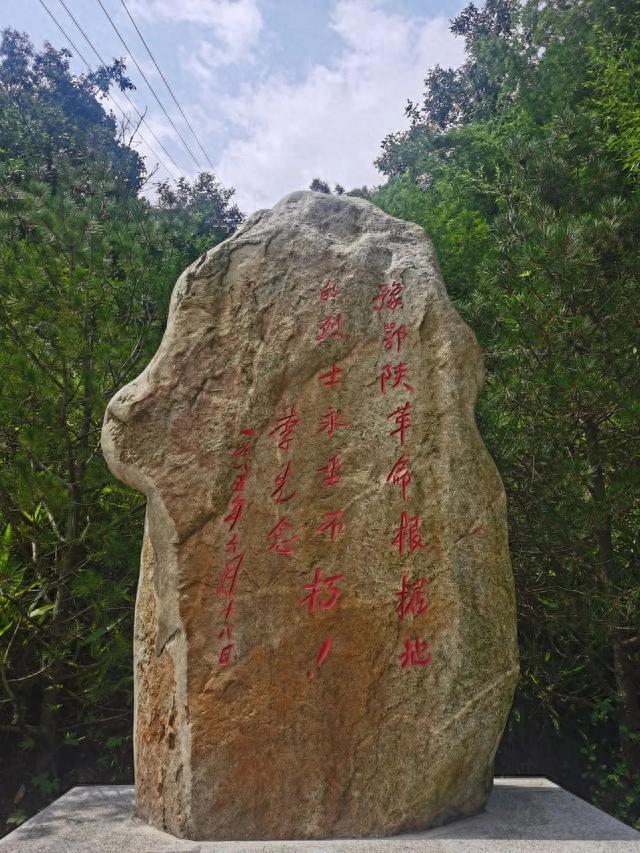 豫鄂陕革命根据地
的烈士永垂不朽！
李先念
一九八五年十月十八日